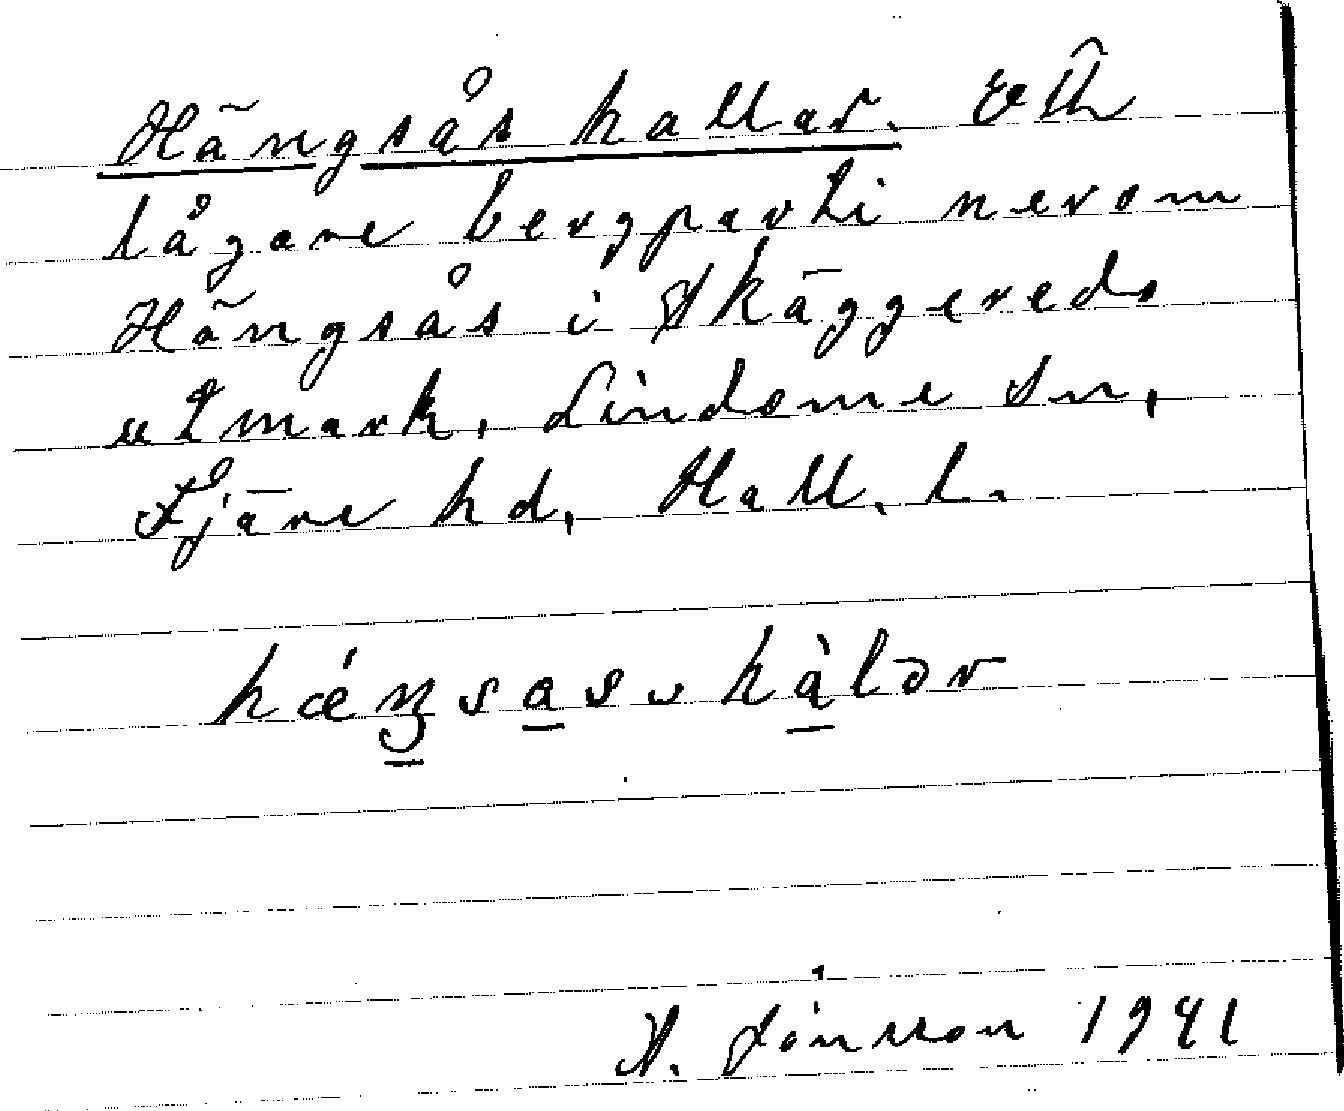 Hängsås hallar. Ett
lågare bergparti nerom
Hängsås i Skäggereds
utmark, Lindome sn,
Fjäre hd, Hall. l.
A. Jönsson 1941